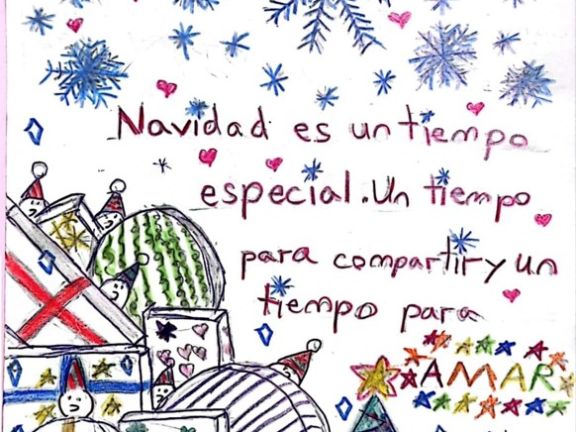 Navidad es un tiempo
especial. Un tiempo
para compartir y un
tiempo para
AMAR